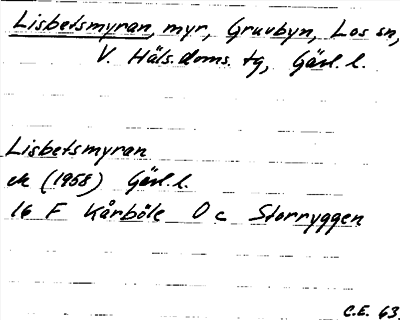 Lisbetsmyran, myr, Gruvbyn, Los sn,
V. Häls. doms. tg, Gävl. l.
Lisbetsmyran
ek (1958) Gävl. l.
16 F Kårböle 0 c Storryggen
C.E. 63.